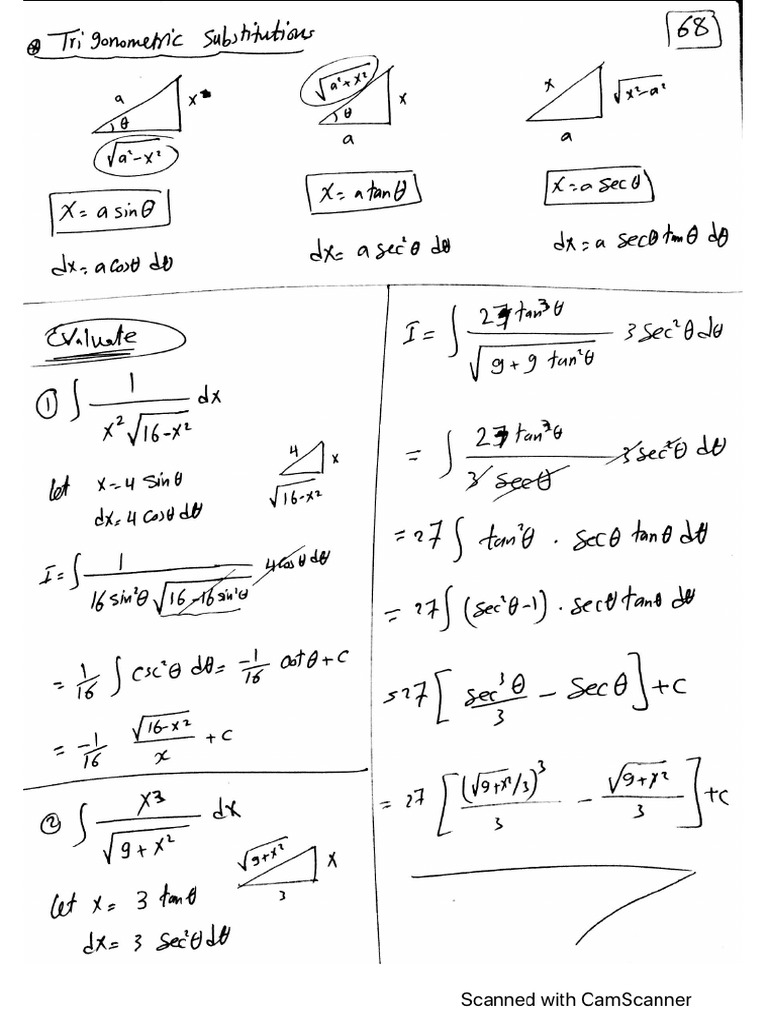 ⊛ Trigonometric Substitutions
68
a θ x √(a²-x²)
√(a²+x²) θ x a
x √(x²-a²) a
x = a sinθ
x = a tanθ
x = a secθ
dx = a cosθ dθ
dx = a sec²θ dθ
dx = a secθ tanθ dθ
Evaluate
① ∫ 1/(x²√(16-x²)) dx
let x = 4 sinθ
dx = 4 cosθ dθ
4 x √(16-x²)
I = ∫ 1/(16 sin²θ √(16-16 sin²θ)) 4cosθ dθ
= 1/16 ∫ csc²θ dθ = -1/16 cotθ + c
= -1/16 √(16-x²)/x + c
② ∫ x3/√(9+x²) dx
let x = 3 tanθ
dx = 3 sec²θ dθ
√(9+x²) x 3
I = ∫ 27 tan³θ/√(9+9 tan²θ) 3 sec²θ dθ
= ∫ 27 tan³θ/(3 secθ) 3 sec²θ dθ
= 27 ∫ tan²θ · secθ tanθ dθ
= 27 ∫ (sec²θ-1) · secθ tanθ dθ
= 27 [sec³θ/3 - secθ] + c
= 27 [(√(9+x²)/3)³/3 - √(9+x²)/3] + c
Scanned with CamScanner